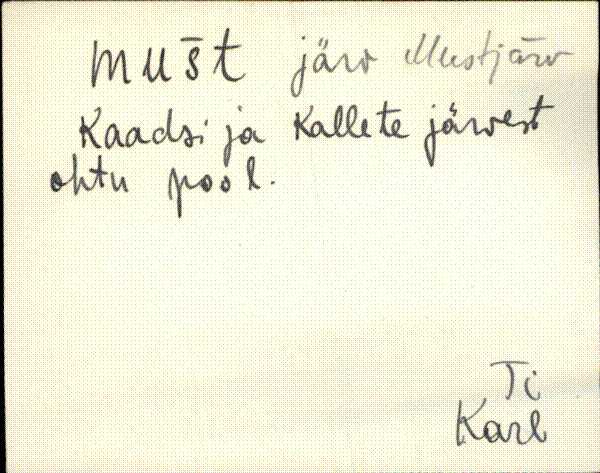 mus̄t järv Mustjärv
Kaadsi ja Kallete järvest
ohtu pool.
Ti
Karl